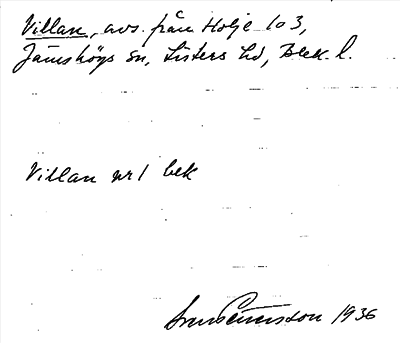 Villan, avs. från Holje 1o3,
Jämshögs sn, Listers hd, Blek. l.
Villan nr 1 bek
Sven Benson 1936